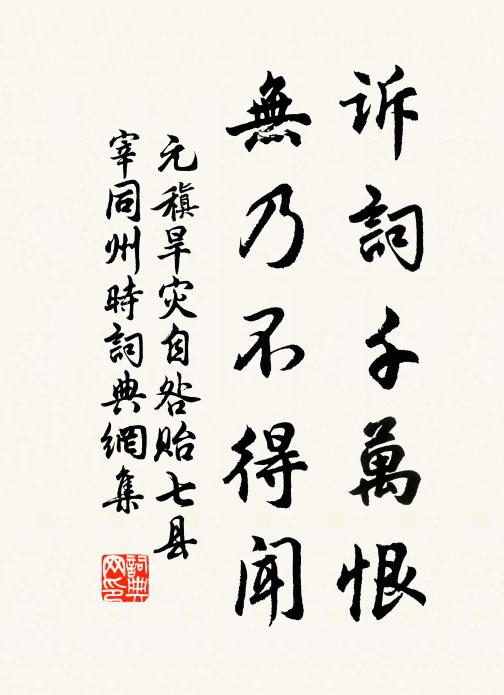 訴詞千萬恨
無乃不得聞
元稹旱灾自咎贻七县
宰同州時詞典網集
詞典网印